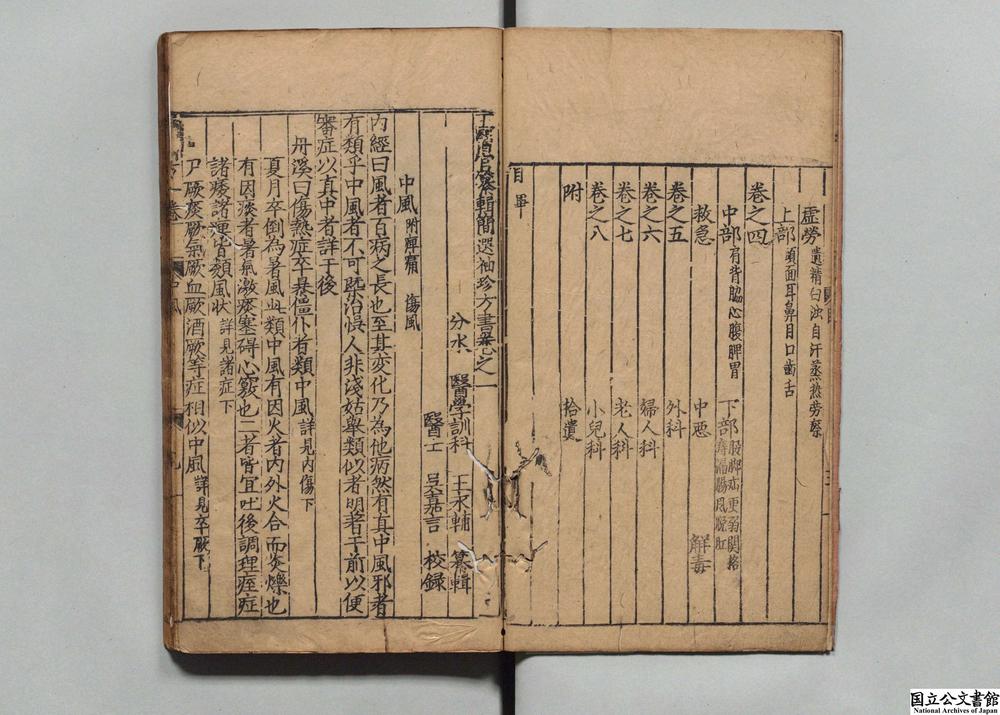 虛勞 遺精白濁自汗蒸熱勞瘵
上部 頭面耳鼻目口齒舌
卷之四
中部 肩背脇心腹脾胃 下部
救急 中惡 解毒
卷之五 外科
卷之六 婦人科
卷之七 老人科
卷之八 小兒科
附 拾遺
目畢
纂輯簡選袖珍方書卷之一
分水 醫學訓科 王永輔 纂輯
醫士 吳嘉言 校録
中風 附痹痛 傷風
内經曰風者百病之長也至其變化乃為他病然有真中風邪者
有類乎中風者不可槩治悞人非淺姑舉類似者明著于前以便
審症以真中者詳于後
丹溪曰傷熱症卒暴僵仆者類中風 詳見内傷下
夏月卒倒為暑風此類中風有因火者内外火合而炎爍也
有因痰者暑氣激痰塞碍心竅也二者皆宜吐後調理痓症
諸痿諸運皆類風狀 詳見諸症下
尸厥痰厥氣厥血厥酒厥等症相似中風 詳見卒厥下
国立公文書館
National Archives of Japan